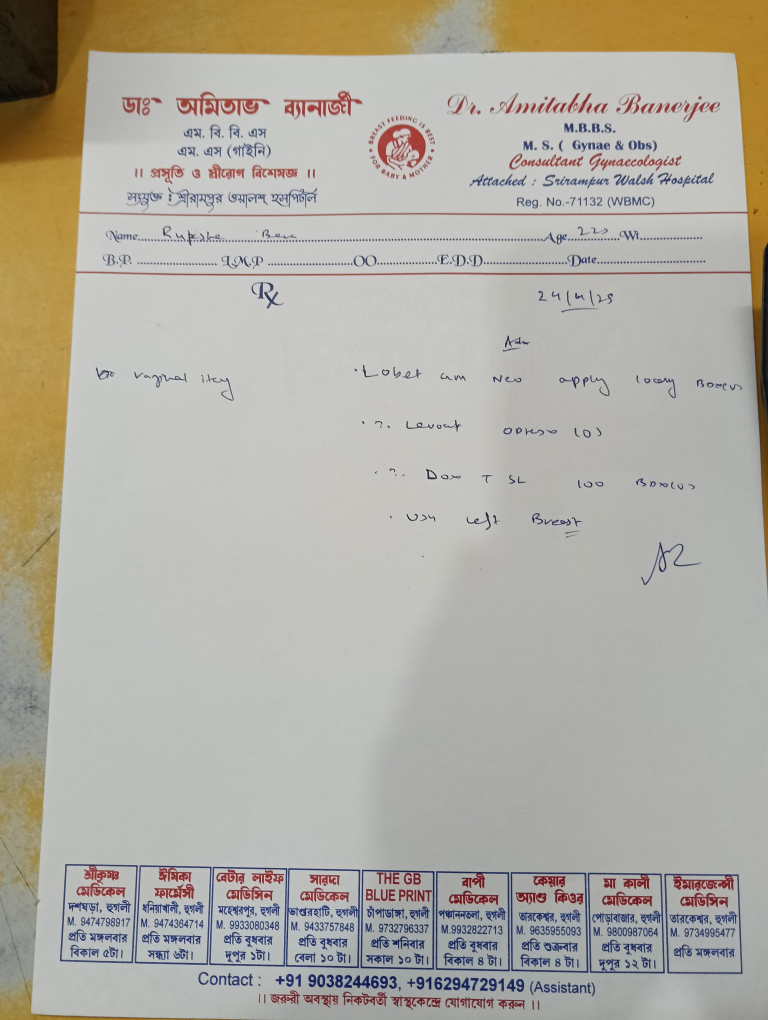 ডাঃ অমিতাভ ব্যানার্জী
এম. বি. বি. এস
এম. এস (গাইনি)
।। প্রসূতি ও স্ত্রীরোগ বিশেষজ্ঞ ।।
সংযুক্ত : শ্রীরামপুর ওয়ালশ হসপিটাল
BREAST FEEDING IS BEST
FOR BABY & MOTHER
Dr. Amitabha Banerjee
M.B.B.S.
M. S. ( Gynae & Obs)
Consultant Gynaecologist
Attached : Srirampur Walsh Hospital
Reg. No.-71132 (WBMC)
Name Age 22 Wt.
B.P. L.M.P OO E.D.D Date
Rx
24/4/25
Adv
vaginal
Lobet apply
100
left Breast
শ্রীকৃষ্ণ মেডিকেল
দশঘড়া, হুগলী
M. 9474798917
প্রতি মঙ্গলবার
বিকাল ৫টা।
ঈষিকা ফার্মেসী
ধনিয়াখালী, হুগলী
M. 9474364714
প্রতি মঙ্গলবার
সন্ধ্যা ৬টা।
বেটার লাইফ মেডিসিন
মহেশ্বরপুর, হুগলী
M. 9933080348
প্রতি বুধবার
দুপুর ১টা।
সারদা মেডিকেল
ভাণ্ডারহাটি, হুগলী
M. 9433757848
প্রতি বুধবার
বেলা ১০ টা।
THE GB BLUE PRINT
চাঁপাডাঙ্গা, হুগলী
M. 9732796337
প্রতি শনিবার
সকাল ১০ টা।
বাপী মেডিকেল
পঞ্চাননতলা, হুগলী
M. 9932822713
প্রতি বুধবার
বিকাল ৪ টা।
কেয়ার অ্যাণ্ড কিওর
তারকেশ্বর, হুগলী
M. 9635955093
প্রতি শুক্রবার
বিকাল ৪ টা।
মা কালী মেডিকেল
পোড়াবাজার, হুগলী
M. 9800987064
প্রতি বুধবার
দুপুর ১২ টা।
ইমারজেন্সী মেডিসিন
তারকেশ্বর, হুগলী
M. 9734995477
প্রতি মঙ্গলবার
Contact : +91 9038244693, +916294729149 (Assistant)
।। জরুরী অবস্থায় নিকটবর্তী স্বাস্থ্যকেন্দ্রে যোগাযোগ করুন ।।